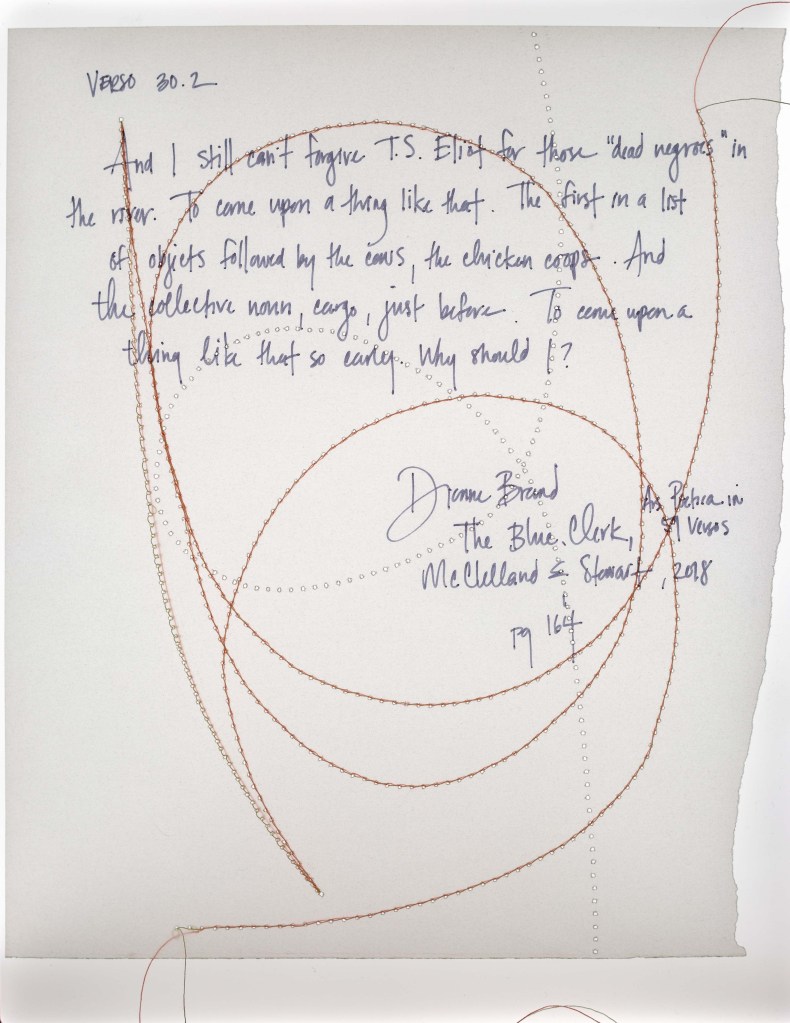 VERSO 30.2
And I still can't forgive T.S. Eliot for those "dead negroes" in
the river. To come upon a thing like that. The first in a list
of objects followed by the cows, the chicken coops. And
the collective noun, cargo, just before. To come upon a
thing like that so early. Why should I?
Dionne Brand
The Blue Clerk, Ars Poetica in
59 Versos
McClelland & Stewart, 2018
pg 164